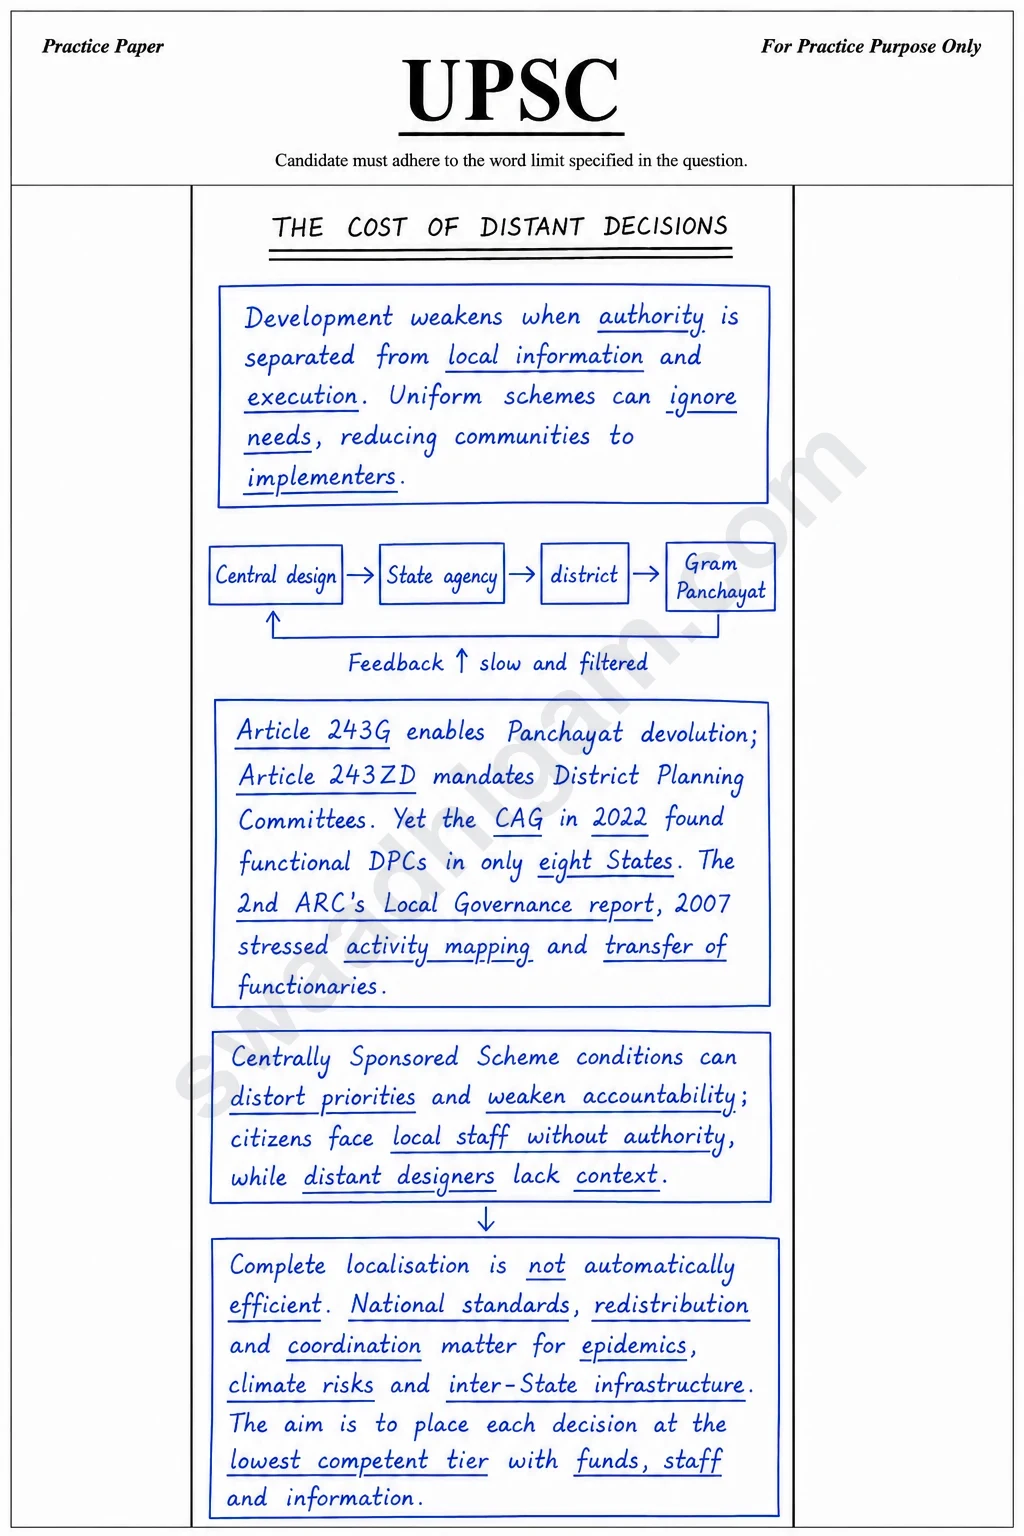 Practice Paper
For Practice Purpose Only
UPSC
Candidate must adhere to the word limit specified in the question.
THE COST OF DISTANT DECISIONS
Development weakens when authority is
separated from local information and
execution. Uniform schemes can ignore
needs, reducing communities to
implementers.
Central design → State agency → district → Gram
Panchayat
Feedback ↑ slow and filtered
Article 243G enables Panchayat devolution;
Article 243ZD mandates District Planning
Committees. Yet the CAG in 2022 found
functional DPCs in only eight States. The
2nd ARC's Local Governance report, 2007
stressed activity mapping and transfer of
functionaries.
Centrally Sponsored Scheme conditions can
distort priorities and weaken accountability;
citizens face local staff without authority,
while distant designers lack context.
↓
Complete localisation is not automatically
efficient. National standards, redistribution
and coordination matter for epidemics,
climate risks and inter-State infrastructure.
The aim is to place each decision at the
lowest competent tier with funds, staff
and information.
swaadhigam.com